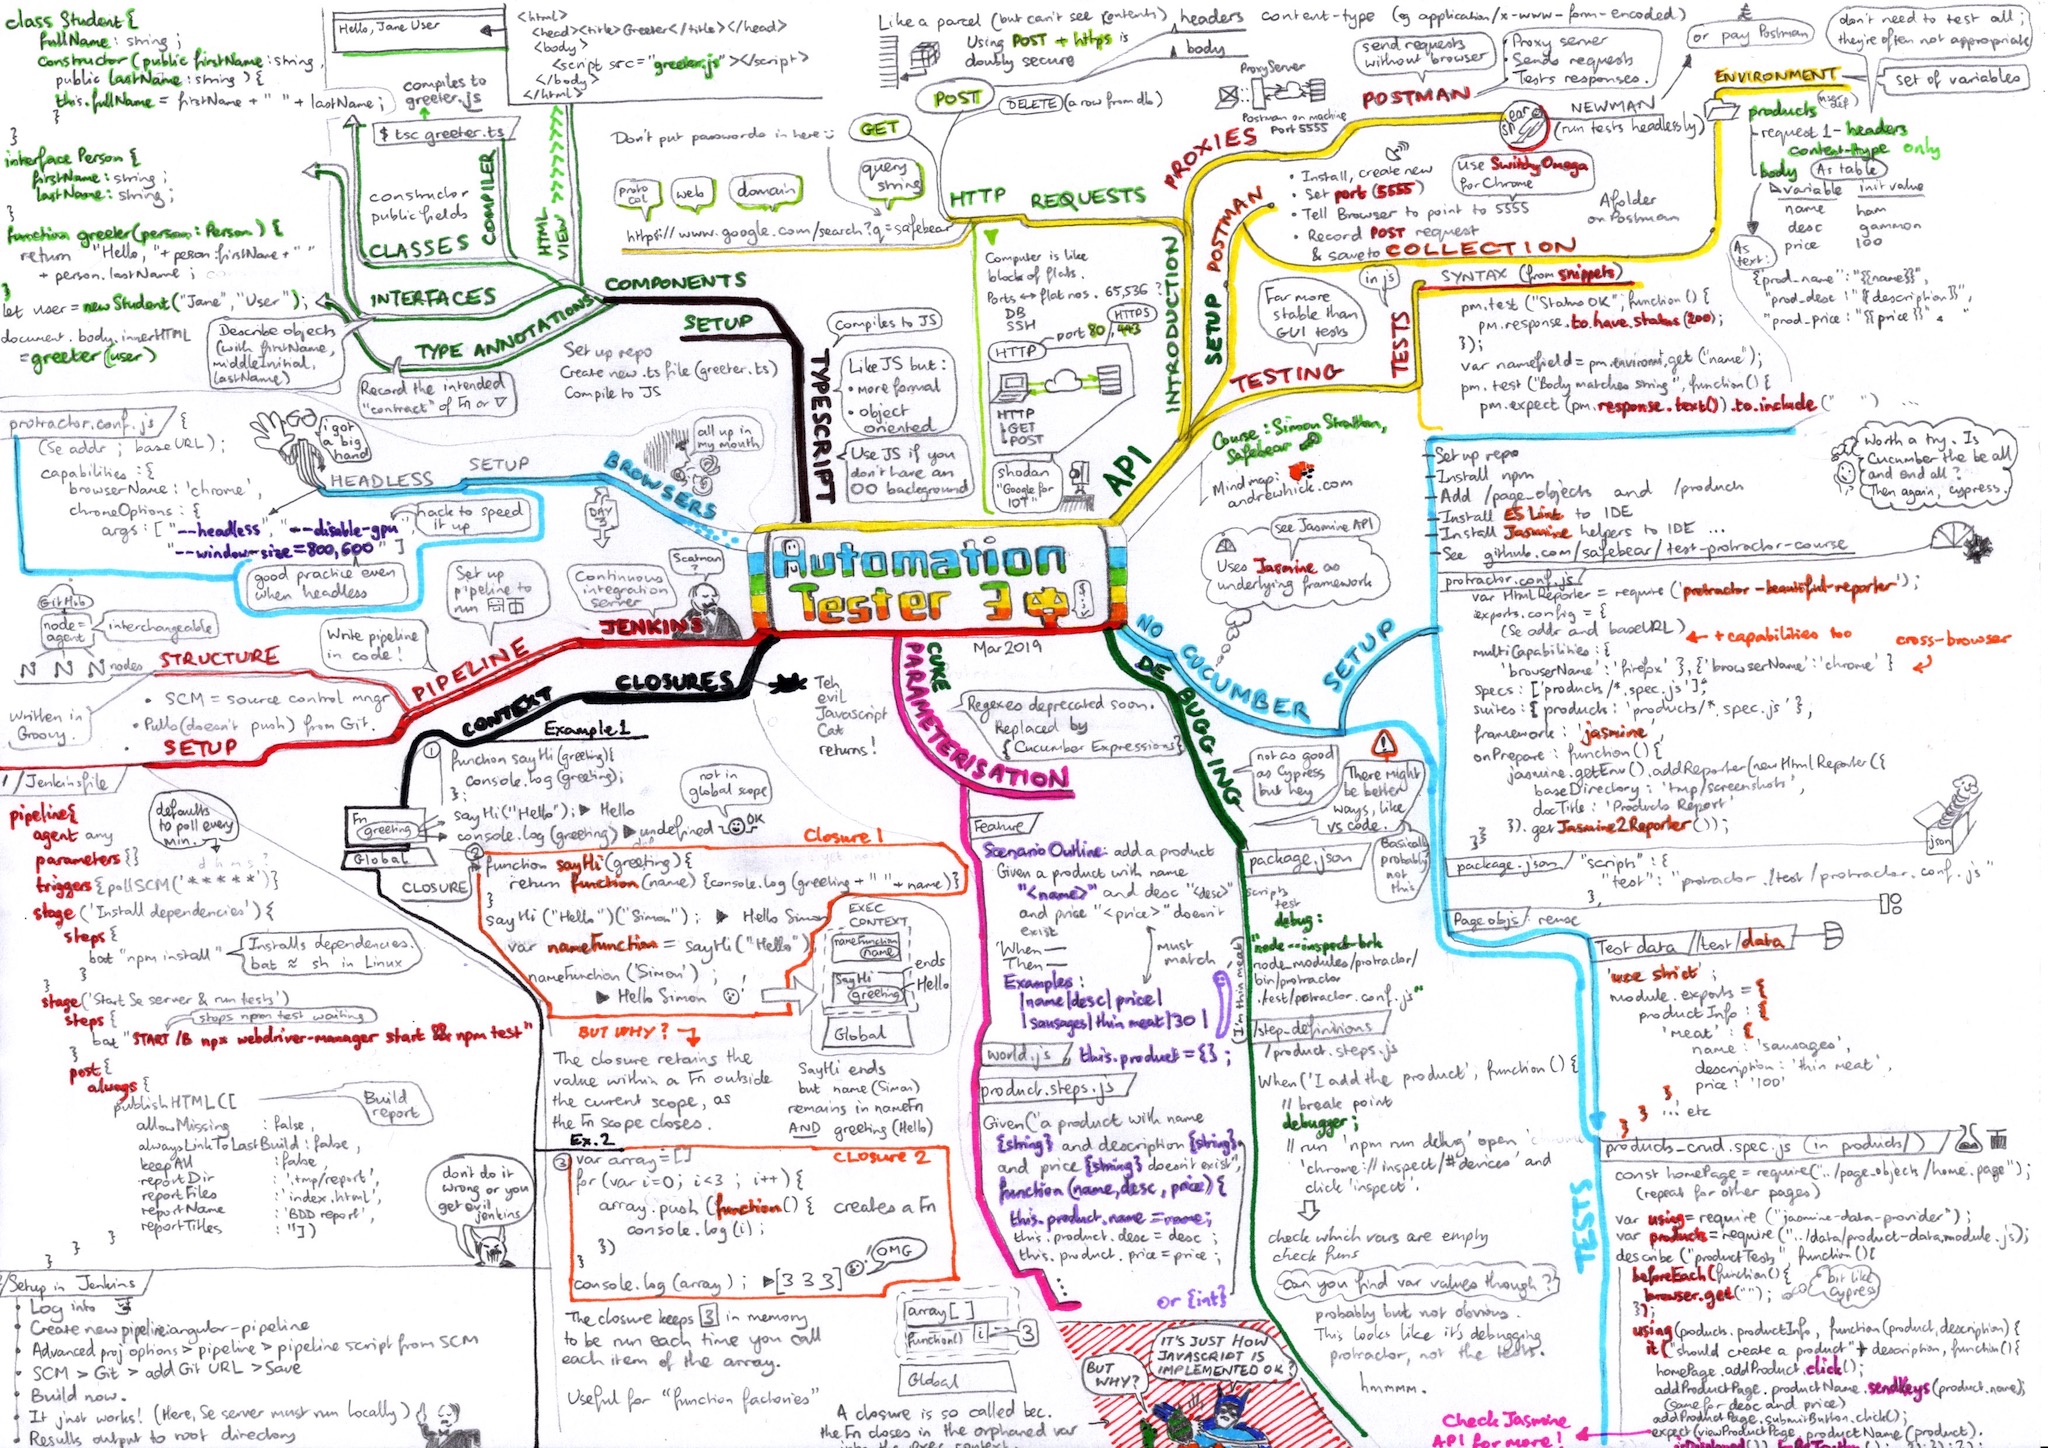 class Student {
fullName : string ;
constructor (public firstName : string ,
public lastName : string ) {
this.fullName = firstName + " " + lastName ;
}
}
interface Person {
firstName : string ;
lastName : string ;
}
function greeter (person : Person ) {
return "Hello, " + person.firstName + " "
+ person.lastName ;
}
let user = new Student ("Jane", "User") ;
document.body.innerHTML
= greeter (user)
Hello, Jane User
compiles to
greeter.js
$ tsc greeter.ts
constructor
public fields
<html>
<head><title>Greeter</title></head>
<body>
<script src="greeter.js"></script>
</body>
</html>
CLASSES
COMPILER
HTML
VIEW >>>>>>>
INTERFACES
TYPE ANNOTATIONS
COMPONENTS
SETUP
TYPESCRIPT
Describe objects
(with firstName,
middleInitial,
lastName)
Record the intended
"contract" of Fn or ▽
Set up repo
Create new .ts file (greeter.ts)
Compile to JS
Compiles to JS
Like JS but :
• more formal
• object
oriented
Use JS if you
don't have an
OO background
Like a parcel (but can't see contents)
Using POST + https is
doubly secure
headers
body
content-type (eg application/x-www-form-encoded)
POST
DELETE (a row from db)
GET
Don't put passwords in here
proto
col
web
domain
query
string
https://www.google.com/search?q=safebear
HTTP REQUESTS
Computer is like
blocks of flats.
Ports ↔ flat nos. 65,536 ?
DB
SSH
HTTPS
port 80 , 443
HTTP
HTTP
GET
POST
shodan
"Google for
IOT"
INTRODUCTION
API
Proxy Server
Postman on machine
Port 5555
PROXIES
POSTMAN
send requests
without browser
• Proxy server
• Sends requests
• Tests responses.
or pay Postman
NEWMAN
(run tests headlessly)
• Install, create new
• Set port (5555)
• Tell Browser to point to 5555
• Record POST request
& save to COLLECTION
Use SwitchyOmega
for Chrome
A folder
on Postman
SETUP POSTMAN
don't need to test all ;
they're often not appropriate
ENVIRONMENT
set of variables
products
request 1 - headers
content-type only
body
As table
variable init value
name ham
desc gammon
price 100
As
text:
{"prod_name": "{{name}}",
"prod_desc": "{{description}}",
"prod_price": "{{price}}"
TESTING
TESTS
Far more
stable than
GUI tests
in js
SYNTAX (from snippets)
pm.test ("Status OK", function () {
pm.response.to.have.status(200);
});
var namefield = pm.environ.get ("name");
pm.test ("Body matches string", function () {
pm.expect (pm.response.text()).to.include ("
Course : Simon Stratton,
Safebear
Mindmap :
andrewhick.com
protractor.conf.js {
(Se addr ; baseURL) ;
capabilities : {
browserName : 'chrome',
chromeOptions : {
args : [ "--headless", "--disable-gpu",
"--window-size=800,600" ]
i got
a big
hand
HEADLESS SETUP
BROWSERS
all up in
my mouth
hack to speed
it up
good practice even
when headless
DAY
3
Automation
Tester 3
Mar 2019
GitHub
node =
agent
interchangeable
N N N nodes
STRUCTURE
Write pipeline
in code !
Set up
pipeline to
run
Continuous
integration
server
Scatman
?
JENKINS
PIPELINE
• SCM = source control mngr
• Pulls (doesn't push) from Git.
Written in
Groovy.
SETUP
/Jenkinsfile
pipeline{
agent any
parameters{}
triggers {pollSCM('* * * * *')}
defaults
to poll every
min.
stage ('Install dependencies') {
steps {
bat "npm install"
}
Installs dependencies.
bat ≈ sh in Linux
stage('Start Se server & run tests')
steps {
stops npm test waiting
bat "START /B npx webdriver-manager start && npm test"
}
post {
always {
publishHTML ([
allowMissing : false,
alwaysLinkToLastBuild : false,
keepAll : false,
reportDir : '.tmp/report',
reportFiles : 'index.html',
reportName : 'BDD report',
reportTitles : ''])
}
}
}
Build
report
don't do it
wrong or you
get evil
jenkins
Setup in Jenkins
• Log into
• Create new pipeline: angular-pipeline
• Advanced proj options > pipeline > pipeline script from SCM
• SCM > Git > add Git URL > Save
• Build now.
• It just works! (Here, Se server must run locally)
• Results output to root directory
CONTEXT
CLOSURES
Teh
evil
Javascript
Cat
returns !
Example 1
1
function sayHi (greeting) {
console.log (greeting);
};
sayHi ("Hello"); ▶ Hello
console.log (greeting) ▶ undefined
not in
global scope
OK
Fn
greeting
Global
CLOSURE
Closure 1
2
function sayHi (greeting) {
return function (name) {console.log (greeting + " " + name)}
}
sayHi ("Hello")("Simon") ; ▶ Hello Simon
var nameFunction = sayHi ("Hello")
nameFunction ('Simon') ;
▶ Hello Simon
EXEC
CONTEXT
nameFunction
name
SayHi
greeting
ends
Hello
Global
BUT WHY?
The closure retains the
value within a Fn outside
the current scope, as
the Fn scope closes.
SayHi ends
but name (Simon)
remains in nameFn
AND greeting (Hello)
Ex.2
CLOSURE 2
3
var array = []
for (var i=0; i<3 ; i++) {
array.push (function () { creates a Fn
console.log (i) ;
})
}
console.log (array) ; ▶ [3 3 3]
OMG
The closure keeps 3 in memory
to be run each time you call
each item of the array.
Useful for "function factories"
array [ ]
function() i 3
Global
A closure is so called bec.
the Fn closes in the orphaned var
into the exec context.
BUT
WHY?
IT'S JUST HOW
JAVASCRIPT IS
IMPLEMENTED OK?
CUKE
PARAMETERISATION
Regexes deprecated soon.
Replaced by
{ Cucumber Expressions}
Feature
Scenario Outline: add a product
Given a product with name
"<name>" and desc "<desc>"
and price "<price>" doesn't
exist
When —
Then —
Examples :
|name|desc|price|
|sausages|thin meat|30|
must
match
(I'm thin meat)
world.js this.product = {} ;
product.steps.js
Given ('a product with name
{string} and description {string}
and price {string} doesn't exist",
function (name, desc, price) {
this.product.name = name ;
this.product.desc = desc ;
this.product.price = price ;
or {int}
DEBUGGING
not as good
as Cypress
but hey
There might
be better
ways, like
VS code.
Basically
probably
not this
package.json
scripts
test
debug :
"node --inspect-brk
node_modules/protractor/
bin/protractor
./test/protractor.conf.js"
/step_definitions
/product.steps.js
When ('I add the product', function () {
// break point
debugger;
// run 'npm run debug' open 'chrome'
'chrome://inspect/#devices' and
click 'inspect'.
check which vars are empty
check funs
Can you find var values though ?
probably but not obvious.
This looks like it's debugging
protractor, not the tests.
hmmmm.
see Jasmine API
Uses Jasmine as
underlying framework
NO CUCUMBER
SETUP
Worth a try. Is
Cucumber the be all
and end all ?
Then again, cypress.
Set up repo
Install npm
Add /page_objects and /products
Install ES Lint to IDE
Install Jasmine helpers to IDE ...
See github.com/safebear/test-protractor-course
protractor.conf.js
var HtmlReporter = require ('protractor-beautiful-reporter');
exports.config = {
(Se addr and baseURL)
+ capabilities too
cross-browser
multiCapabilities : {
'browserName' : 'firefox' }, {'browserName' : 'chrome' }
specs : ['products/*.spec.js'],
suites : { products : 'products/*.spec.js' },
framework : 'jasmine',
onPrepare : function () {
jasmine.getEnv().addReporter(new HtmlReporter ({
baseDirectory : 'tmp/screenshots',
docTitle : 'Products Report'
}).getJasmine2Reporter());
}}
json
package.json "scripts" : {
"test" : "protractor ./test/protractor.conf.js"
},
Page objs reuse
Test data //test/data
'use strict' ;
module.exports = {
productInfo : {
'meat' : {
name : 'sausages',
description : 'thin meat',
price : '100'
} ,
} } ... etc
TESTS
products_crud.spec.js (in products/)
const homePage = require("../page_objects/home.page");
(repeat for other pages)
var using = require ("jasmine-data-provider") ;
var products = require ("../data/product-data.module.js);
describe ("product Tests", function () {
beforeEach (function () {
browser.get ("") ;
});
bit like
cypress
using (products.productInfo, function (product, description) {
it ("should create a product" + description, function () {
homePage.addProduct.click();
addProductPage.productName.sendKeys (product.name)
(same for desc and price)
addProductPage.submitButton.click();
expect (viewProductPage.productName (product).
Check Jasmine
API for more !